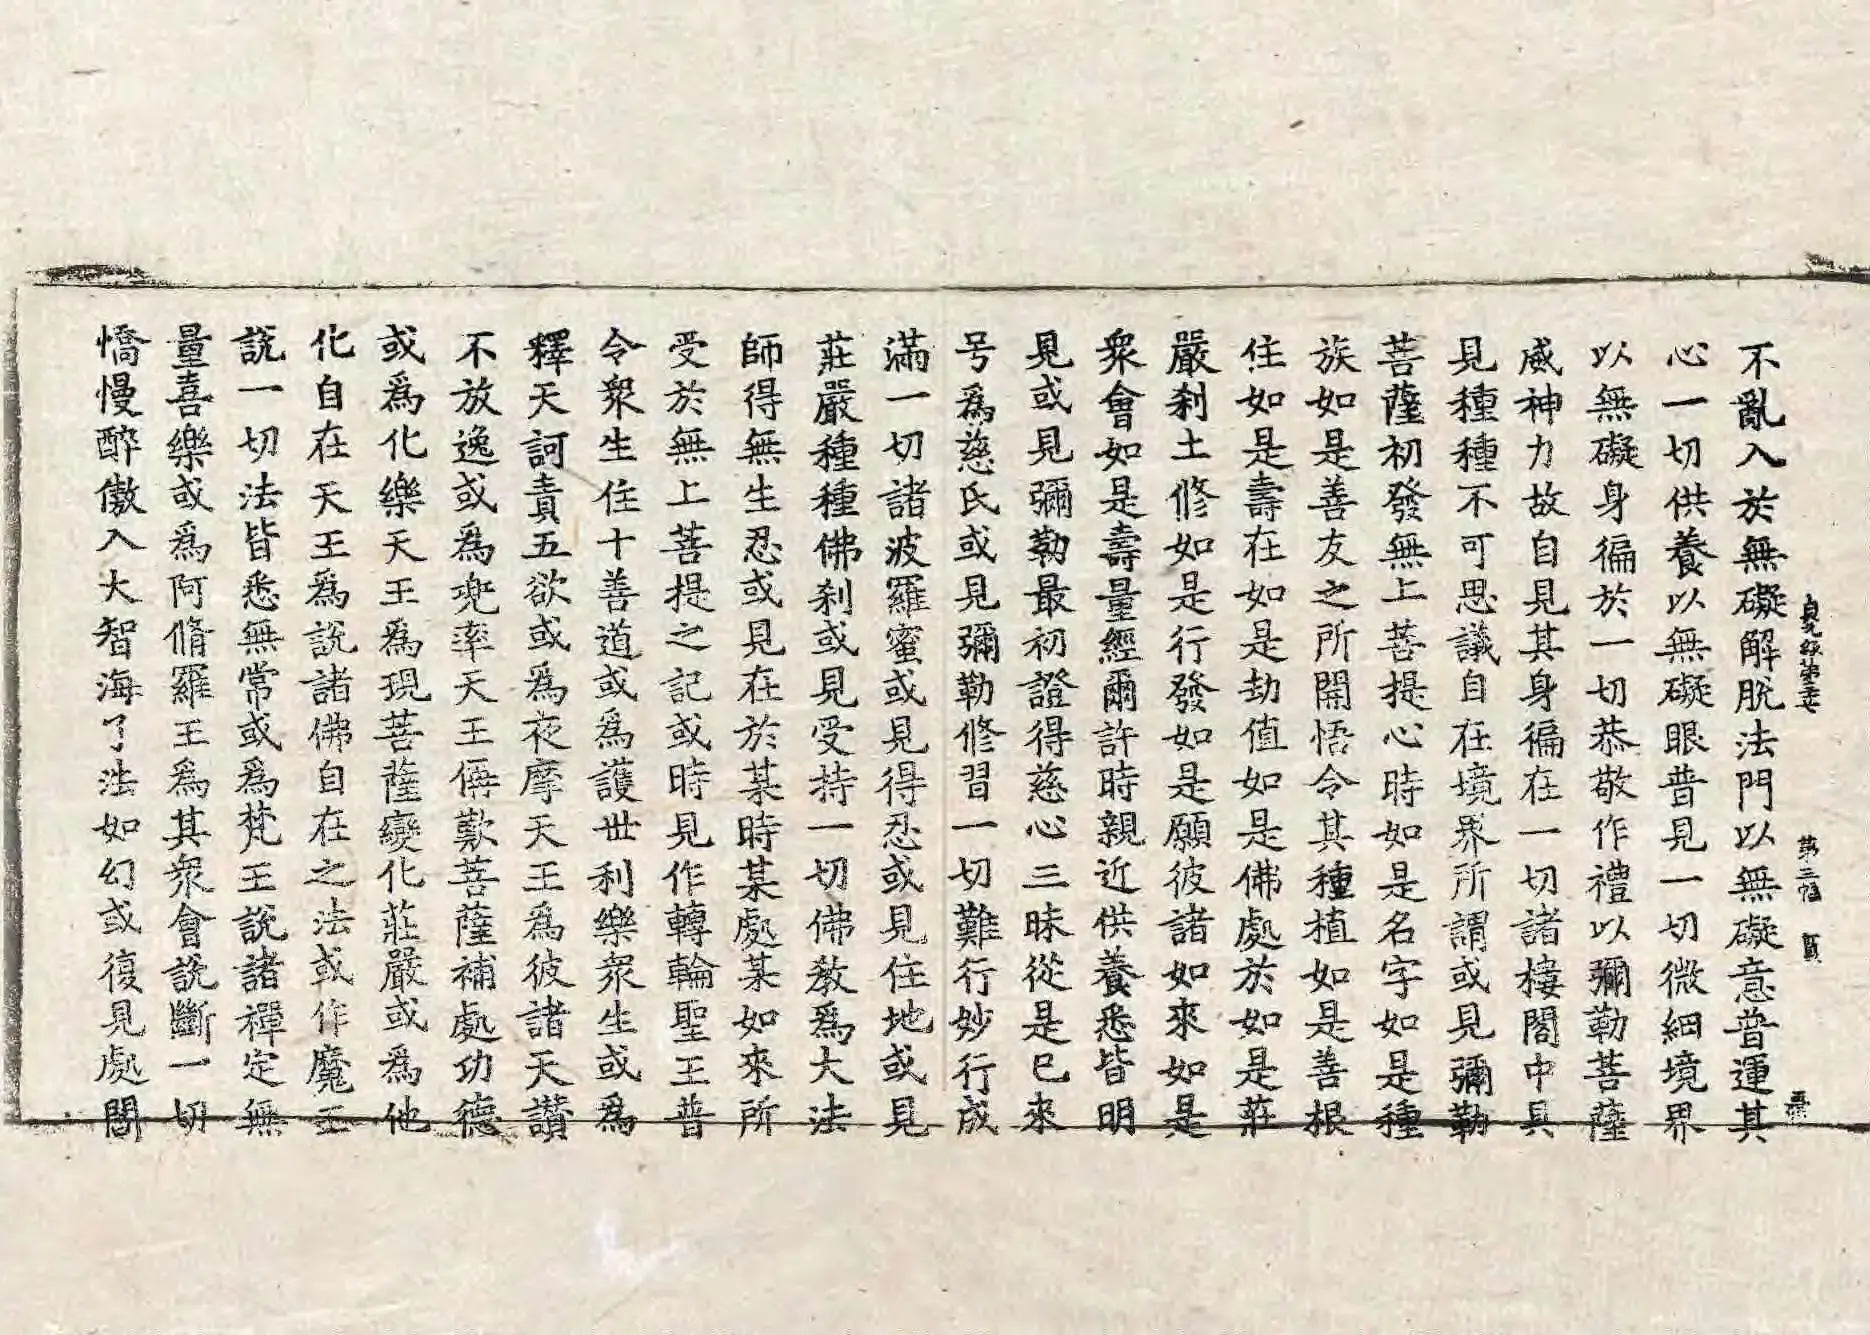 不亂入於無礙解脫法門以無礙意普運其
心一切供養以無礙眼普見一切微細境界
以無礙身徧於一切恭敬作禮以彌勒菩薩
威神力故自見其身徧在一切諸樓閣中具
見種種不可思議自在境界所謂或見彌勒
菩薩初發無上菩提心時如是名字如是種
族如是善友之所開悟令其種植如是善根
住如是壽在如是劫值如是佛處於如是莊
嚴刹土修如是行發如是願彼諸如來如是
衆會如是壽量經爾許時親近供養悉皆明
見或見彌勒最初證得慈心三昧從是已來
号爲慈氏或見彌勒修習一切難行妙行成
滿一切諸波羅蜜或見得忍或見住地或見
莊嚴種種佛刹或見受持一切佛教爲大法
師得無生忍或見在於某時某處某如來所
受於無上菩提之記或時見作轉輪聖王普
令衆生住十善道或爲護世利樂衆生或爲
釋天訶責五欲或爲夜摩天王爲彼諸天讚
不放逸或爲兜率天王稱歎菩薩補處功德
或爲化樂天王爲現菩薩變化莊嚴或爲他
化自在天王爲說諸佛自在之法或作魔王
說一切法皆悉無常或爲梵王說諸禪定無
量喜樂或爲阿脩羅王爲其衆會說斷一切
憍慢醉慠入大智海了法如幻或復見處閻